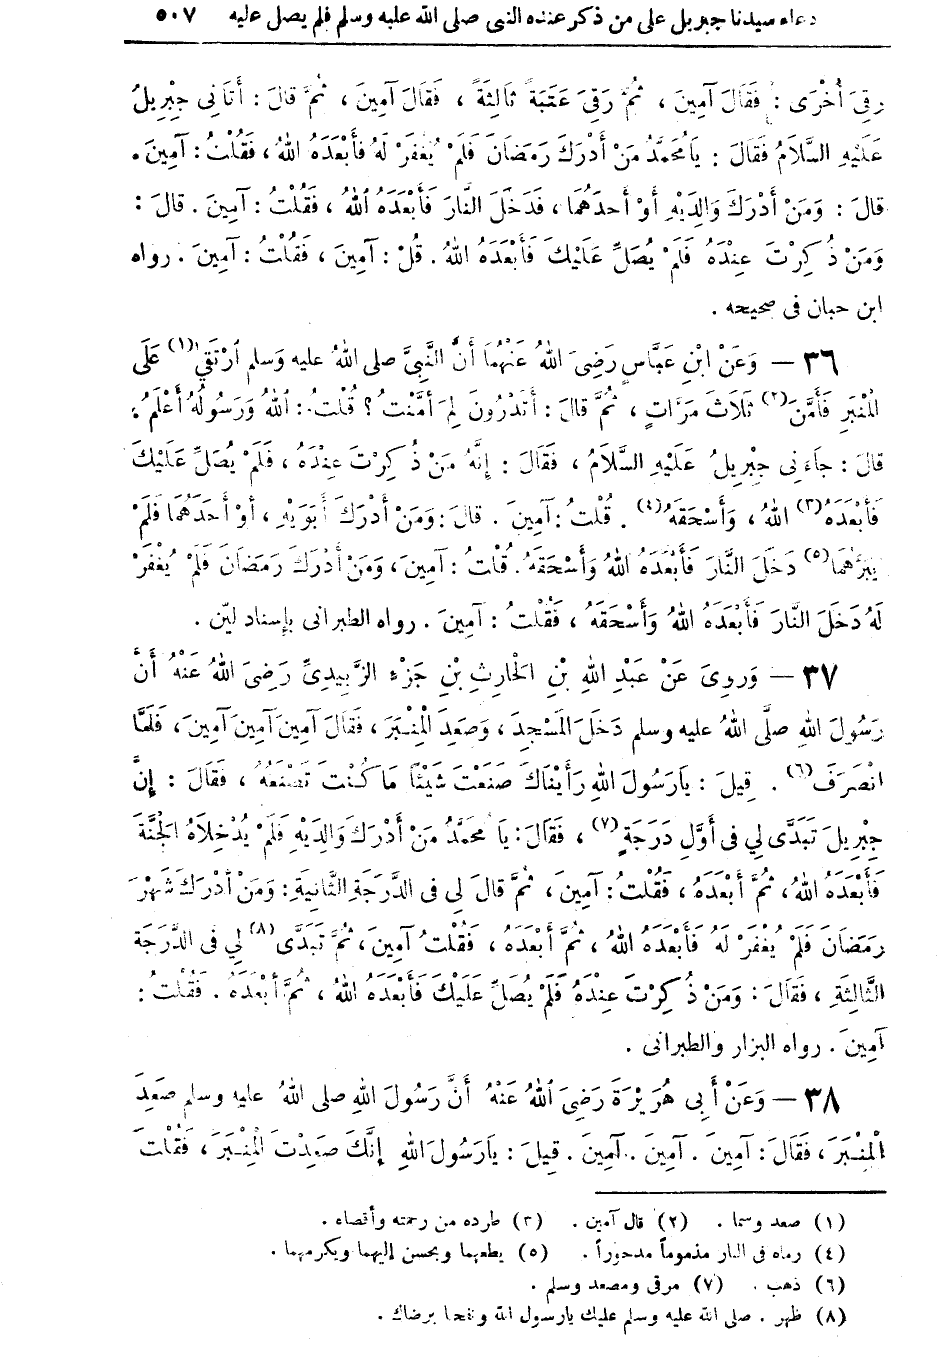 دعاء سيدنا جبريل على من ذكر عنده النبى صلى الله عليه وسلم فلم يصل عليه ٥٠٧
رقِىَ أُخْرَى : فَقَالَ آمِينَ ، ثُمَّ رَقِىَ عَتَبَةً ثَالِثَةً ، فَقَالَ آمِينَ ، ثُمَّ قالَ : أَتَانِى جِبْرِيلُ
عَلَيْهِ السَّلَامُ فَقَالَ : يَا مُحَمَّدُ مَنْ أَدْرَكَ رَمَضَانَ فَلَمْ يُغْفَرْ لَهُ فَأَبْعَدَهُ اللهُ ، فَقُلْتُ : آمِينَ .
قالَ : وَمَنْ أَدْرَكَ وَالِدَيْهِ أَوْ أَحَدَهُمَا ، فَدَخَلَ النَّارَ فَأَبْعَدَهُ اللهُ ، فَقُلْتُ : آمِينَ . قالَ :
وَمَنْ ذُكِرْتَ عِنْدَهُ فَلَمْ يُصَلِّ عَلَيْكَ فَأَبْعَدَهُ اللهُ . قُلْ : آمِينَ ، فَقُلْتُ : آمِينَ . رواه
ابن حبان فى صحيحه .
٣٦ — وَعَنْ ابْنِ عَبَّاسٍ رَضِىَ اللهُ عَنْهُمَا أَنَّ النَّبِىَّ صلى اللهُ عليه وَسلم ارْتَقَى (١) عَلَى
الْمِنْبَرِ فَأَمَّنَ (٢) ثَلَاثَ مَرَّاتٍ ، ثُمَّ قالَ : أَتَدْرُونَ لِمَ أَمَّنْتُ ؟ قُلْتُ : اللهُ وَرَسُولُهُ أَعْلَمُ ،
قالَ : جاءَنِى جِبْرِيلُ عَلَيْهِ السَّلَامُ ، فَقَالَ : إِنَّهُ مَنْ ذُكِرْتَ عِنْدَهُ ، فَلَمْ يُصَلِّ عَلَيْكَ
فَأَبْعَدَهُ (٣) اللهُ ، وَأَسْحَقَهُ (٤) . قُلْتُ : آمِينَ . قالَ : وَمَنْ أَدْرَكَ أَبَوَيْهِ ، أَوْ أَحَدَهُمَا فَلَمْ
يَبَرَّهُمَا (٥) دَخَلَ النَّارَ فَأَبْعَدَهُ اللهُ وَأَسْحَقَهُ . قُلْتُ : آمِينَ ، وَمَنْ أَدْرَكَ رَمَضَانَ فَلَمْ يُغْفَرْ
لَهُ دَخَلَ النَّارَ فَأَبْعَدَهُ اللهُ وَأَسْحَقَهُ ، فَقُلْتُ : آمِينَ . رواه الطبرانى بإسناد ليّن .
٣٧ — وَرُوِىَ عَنْ عَبْدِ اللهِ بْنِ الحارِثِ بْنِ جَزْءٍ الزَّبِيدِىِّ رَضِىَ اللهُ عَنْهُ أَنَّ
رَسُولَ اللهِ صلَّى اللهُ عليه وسلم دَخَلَ الْمَسْجِدَ ، وَصَعِدَ الْمِنْبَرَ ، فَقَالَ آمِينَ آمِينَ آمِينَ ، فَلَمَّا
انْصَرَفَ (٦) . قِيلَ : يَارَسُولَ اللهِ رَأَيْنَاكَ صَنَعْتَ شَيْئًا مَا كُنْتَ تَصْنَعُهُ ، فَقَالَ : إِنَّ
جِبْرِيلَ تَبَدَّى لِي فى أَوَّلِ دَرَجَةٍ (٧) ، فَقَالَ : يَا مُحَمَّدُ مَنْ أَدْرَكَ وَالِدَيْهِ فَلَمْ يُدْخِلاَهُ الْجَنَّةَ
فَأَبْعَدَهُ اللهُ ، ثُمَّ أَبْعَدَهُ ، فَقُلْتُ : آمِينَ ، ثُمَّ قالَ لِي فى الدَّرَجَةِ الثَّانِيَةِ : وَمَنْ أَدْرَكَ شَهْرَ
رَمَضَانَ فَلَمْ يُغْفَرْ لَهُ فَأَبْعَدَهُ اللهُ ، ثُمَّ أَبْعَدَهُ ، فَقُلْتُ آمِينَ ، ثُمَّ تَبَدَّى (٨) لِي فى الدَّرَجَةِ
الثَّالِثَةِ ، فَقَالَ : وَمَنْ ذُكِرْتَ عِنْدَهُ فَلَمْ يُصَلِّ عَلَيْكَ فَأَبْعَدَهُ اللهُ ، ثُمَّ أَبْعَدَهُ . فَقُلْتُ :
آمِينَ . رواه البزار والطبرانى .
٣٨ — وَعَنْ أَبِى هُرَيْرَةَ رَضِىَ اللهُ عَنْهُ أَنَّ رَسُولَ اللهِ صلى اللهُ عليه وسلم صَعِدَ
الْمِنْبَرَ ، فَقَالَ : آمِينَ . آمِينَ . آمِينَ . قِيلَ : يَارَسُولَ اللهِ إِنَّكَ صَعِدْتَ الْمِنْبَرَ ، فَقُلْتَ
(١) صعد وسما . (٢) قال آمين . (٣) طرده من رحمته وأقصاه .
(٤) رماه فى النار مذموماً مدحوراً . (٥) يطعهما ويحسن إليهما ويكرمهما .
(٦) ذهب . (٧) مرقى ومصعد وسلم .
(٨) ظهر . صلى الله عليه وسلم عليك يارسول الله ونفحنا برضاك .